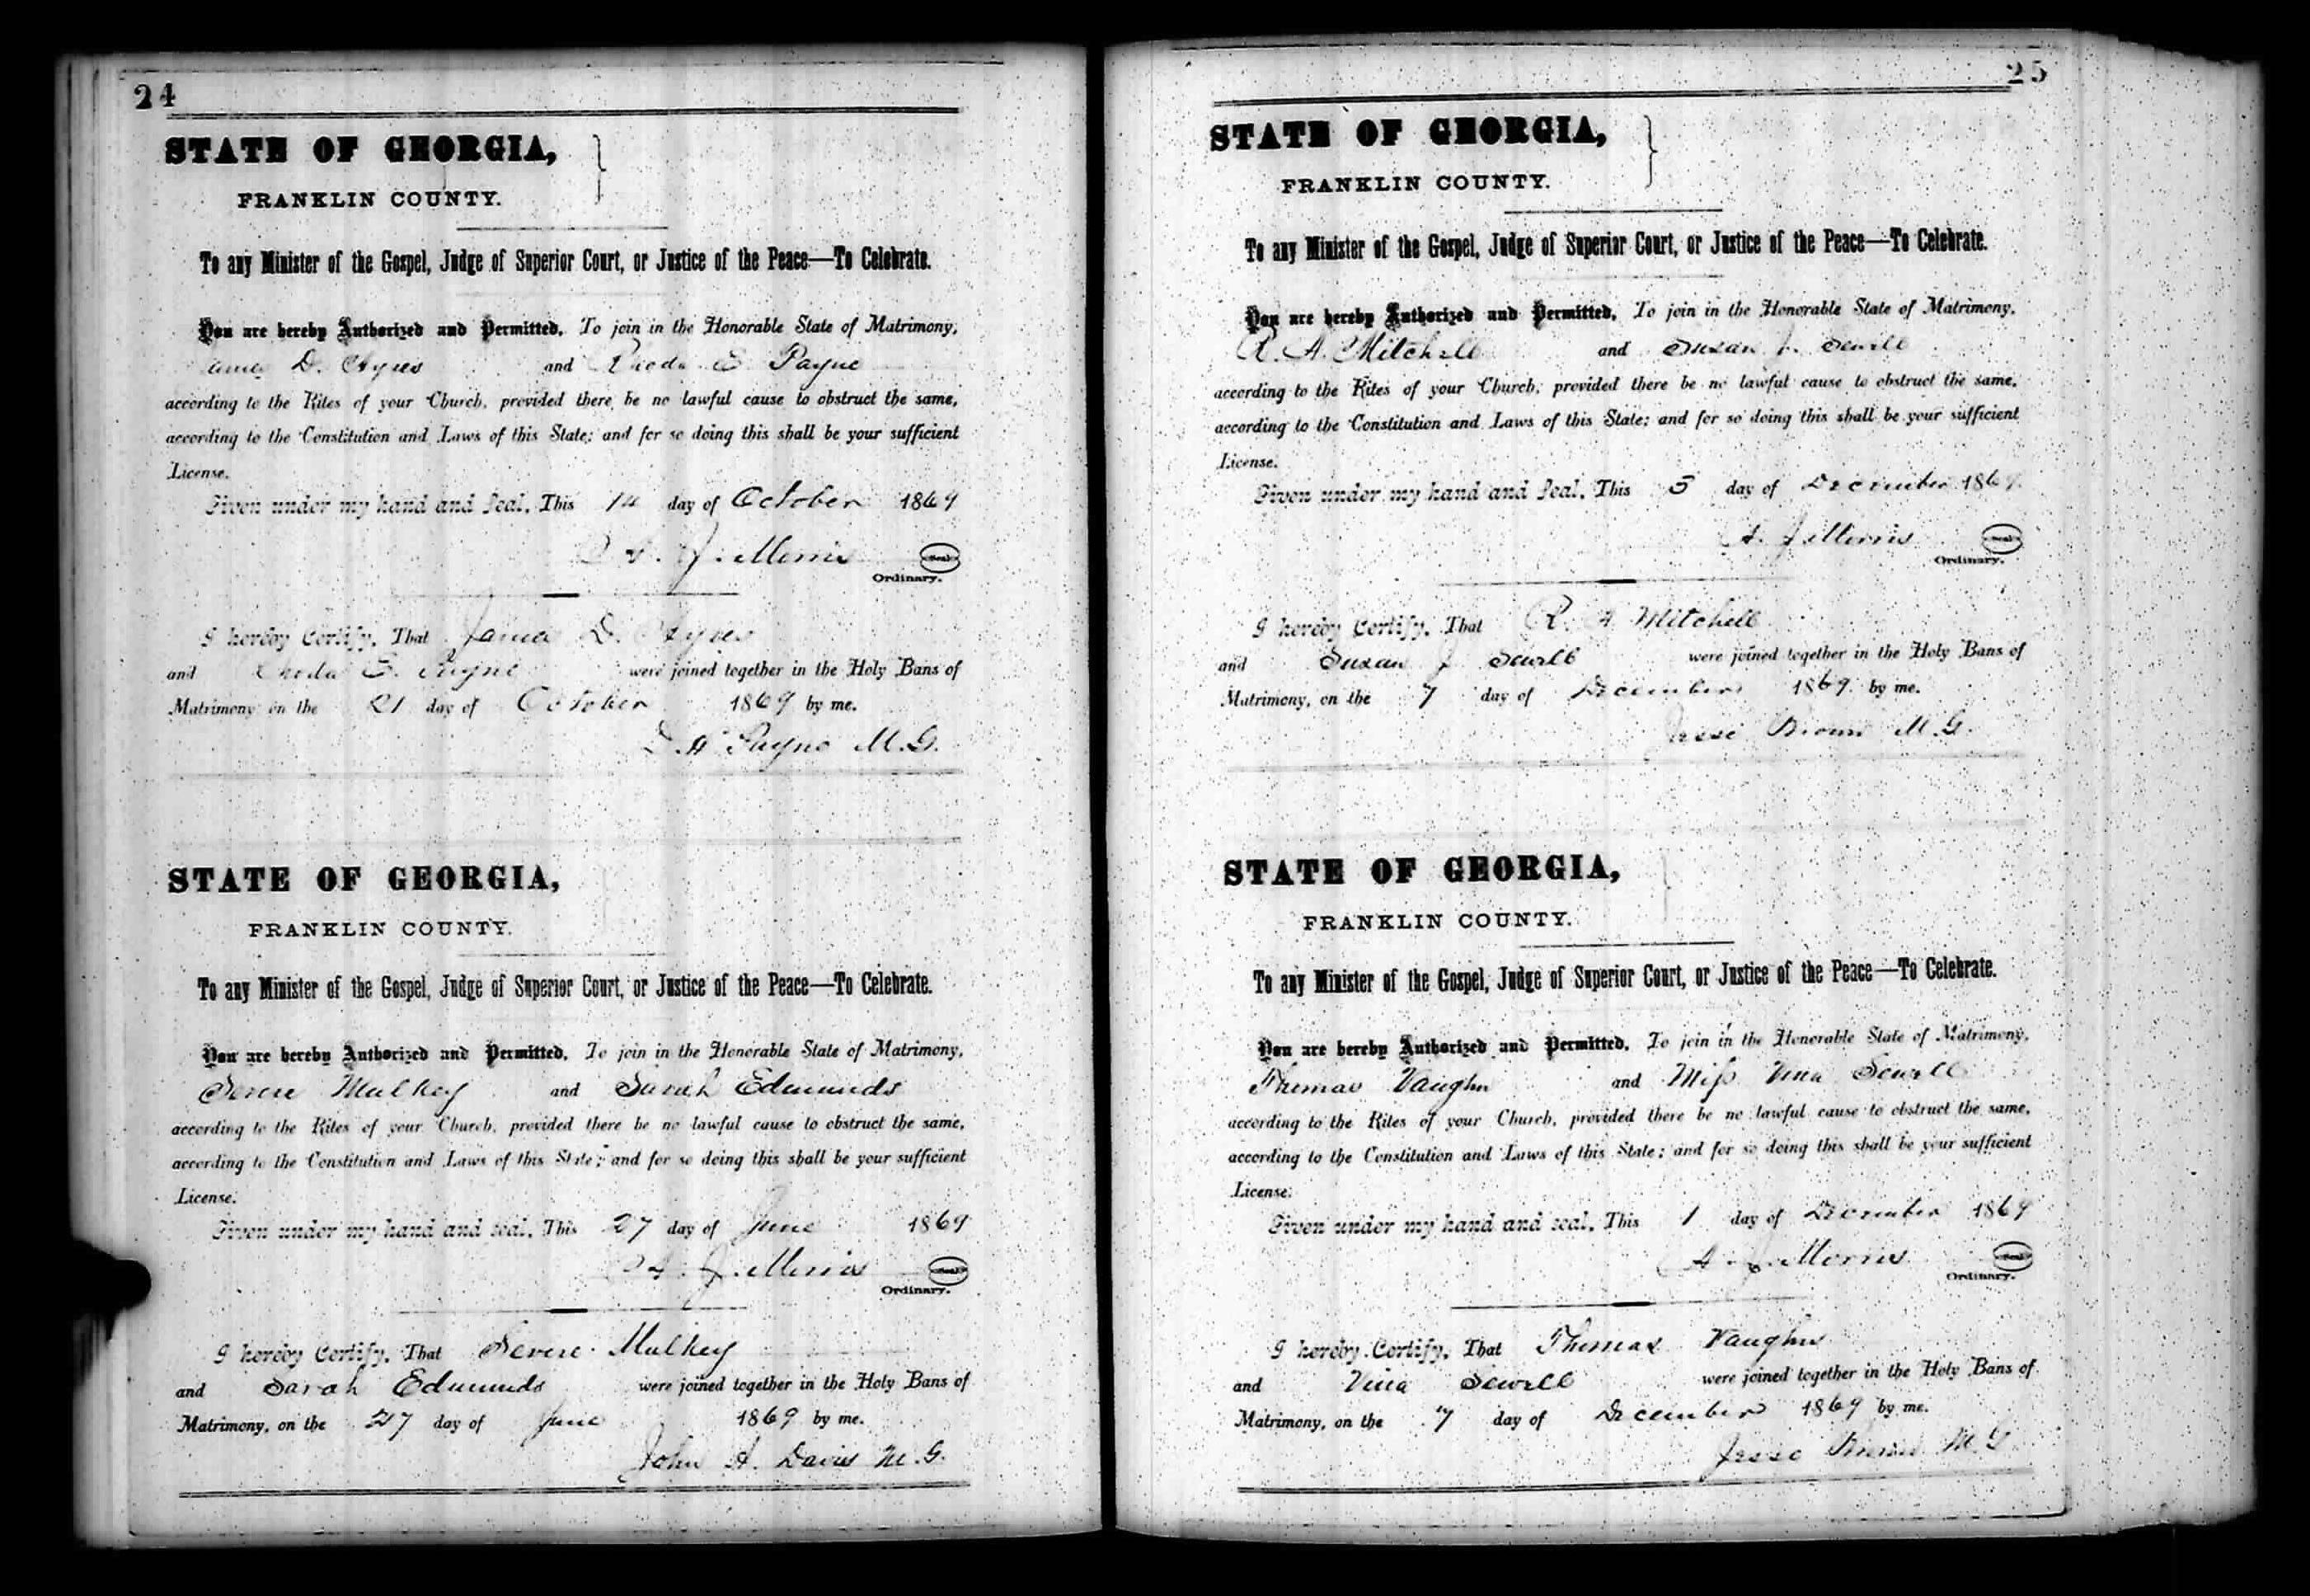 24
STATE OF GEORGIA,
FRANKLIN COUNTY.
To any Minister of the Gospel, Judge of Superior Court, or Justice of the Peace—To Celebrate.
You are hereby Authorized and Permitted, To join in the Honorable State of Matrimony,
D. Ayres and E. Payne
according to the Rites of your Church, provided there be no lawful cause to obstruct the same,
according to the Constitution and Laws of this State; and for so doing this shall be your sufficient
License.
Given under my hand and Seal, This 14 day of October 1869
A. J. Morris Seal
Ordinary.
I hereby Certify, That James D. Ayres
and E. Payne were joined together in the Holy Bans of
Matrimony on the 21 day of October 1869 by me.
Payne M.G.
STATE OF GEORGIA,
FRANKLIN COUNTY.
To any Minister of the Gospel, Judge of Superior Court, or Justice of the Peace—To Celebrate.
You are hereby Authorized and Permitted, To join in the Honorable State of Matrimony,
Mulkey and Sarah Edmunds
according to the Rites of your Church, provided there be no lawful cause to obstruct the same,
according to the Constitution and Laws of this State; and for so doing this shall be your sufficient
License.
Given under my hand and seal, This 27 day of June 1869
A. J. Morris Seal
Ordinary.
I hereby Certify, That Mulkey
and Sarah Edmunds were joined together in the Holy Bans of
Matrimony, on the 27 day of June 1869 by me.
John A. Davis M.G.
25
STATE OF GEORGIA,
FRANKLIN COUNTY.
To any Minister of the Gospel, Judge of Superior Court, or Justice of the Peace—To Celebrate.
You are hereby Authorized and Permitted, To join in the Honorable State of Matrimony,
R. A. Mitchell and Susan J. Sewell
according to the Rites of your Church, provided there be no lawful cause to obstruct the same,
according to the Constitution and Laws of this State; and for so doing this shall be your sufficient
License.
Given under my hand and Seal, This 5 day of December 1869
A. J. Morris Seal
Ordinary.
I hereby Certify, That R. A Mitchell
and Susan J Sewell were joined together in the Holy Bans of
Matrimony, on the 7 day of December 1869 by me.
Jesse Brown M.G.
STATE OF GEORGIA,
FRANKLIN COUNTY.
To any Minister of the Gospel, Judge of Superior Court, or Justice of the Peace—To Celebrate.
You are hereby Authorized and Permitted, To join in the Honorable State of Matrimony,
Thomas Vaughn and Miss Vina Sewell
according to the Rites of your Church, provided there be no lawful cause to obstruct the same,
according to the Constitution and Laws of this State; and for so doing this shall be your sufficient
License.
Given under my hand and seal, This 1 day of December 1869
A. J. Morris Seal
Ordinary.
I hereby Certify, That Thomas Vaughn
and Vina Sewell were joined together in the Holy Bans of
Matrimony, on the 7 day of December 1869 by me.
Jesse Brown M.G